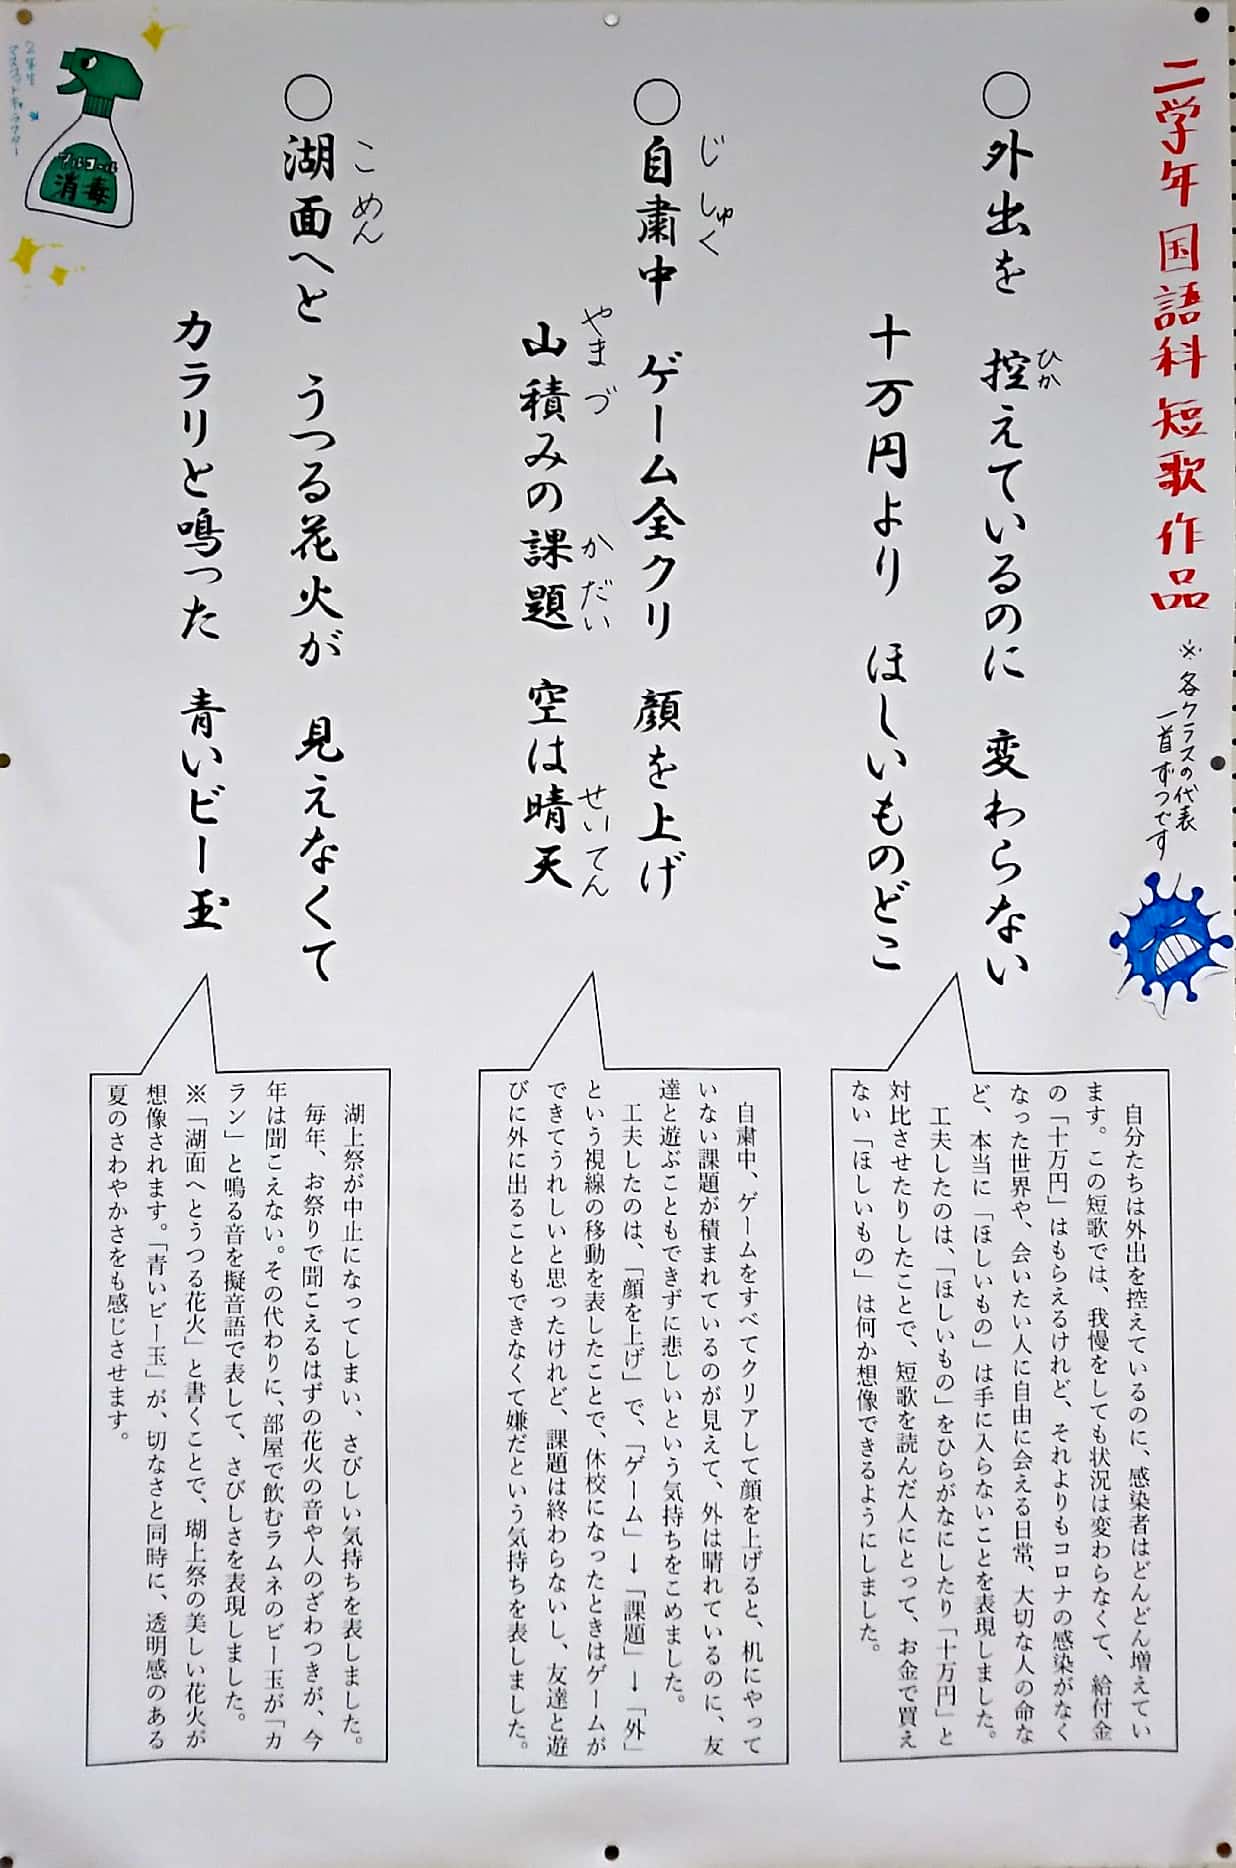 二学年 国語科 短歌 作品
※各クラスの代表
一首ずつです
○外出を 控えているのに 変わらない
ひか
十万円より ほしいものどこ
○自粛中 ゲーム全クリ 顔を上げ
じしゅく
山積みの課題 空は晴天
やまづ かだい せいてん
○湖面へと うつる花火が 見えなくて
こめん
カラリと鳴った 青いビー玉
自分たちは外出を控えているのに、感染者はどんどん増えてい
ます。この短歌では、我慢をしても状況は変わらなくて、給付金
の「十万円」はもらえるけれど、それよりもコロナの感染がなく
なった世界や、会いたい人に自由に会える日常、大切な人の命な
ど、本当に「ほしいもの」は手に入らないことを表現しました。
工夫したのは、「ほしいもの」をひらがなにしたり「十万円」と
対比させたりしたことで、短歌を読んだ人にとって、お金で買え
ない「ほしいもの」は何か想像できるようにしました。
自粛中、ゲームをすべてクリアして顔を上げると、机にやって
いない課題が積まれているのが見えて、外は晴れているのに、友
達と遊ぶこともできずに悲しいという気持ちをこめました。
工夫したのは、「顔を上げ」で、「ゲーム」→「課題」→「外」
という視線の移動を表したことで、休校になったときはゲームが
できてうれしいと思ったけれど、課題は終わらないし、友達と遊
びに外に出ることもできなくて嫌だという気持ちを表しました。
湖上祭が中止になってしまい、さびしい気持ちを表しました。
毎年、お祭りで聞こえるはずの花火の音や人のざわつきが、今
年は聞こえない。その代わりに、部屋で飲むラムネのビー玉が「カ
ラン」と鳴る音を擬音語で表して、さびしさを表現しました。
※「湖面へとうつる花火」と書くことで、瑚上祭の美しい花火が
想像されます。「青いビー玉」が、切なさと同時に、透明感のある
夏のさわやかさをも感じさせます。
アルコール
消毒
2年生
マスコットキャラクター